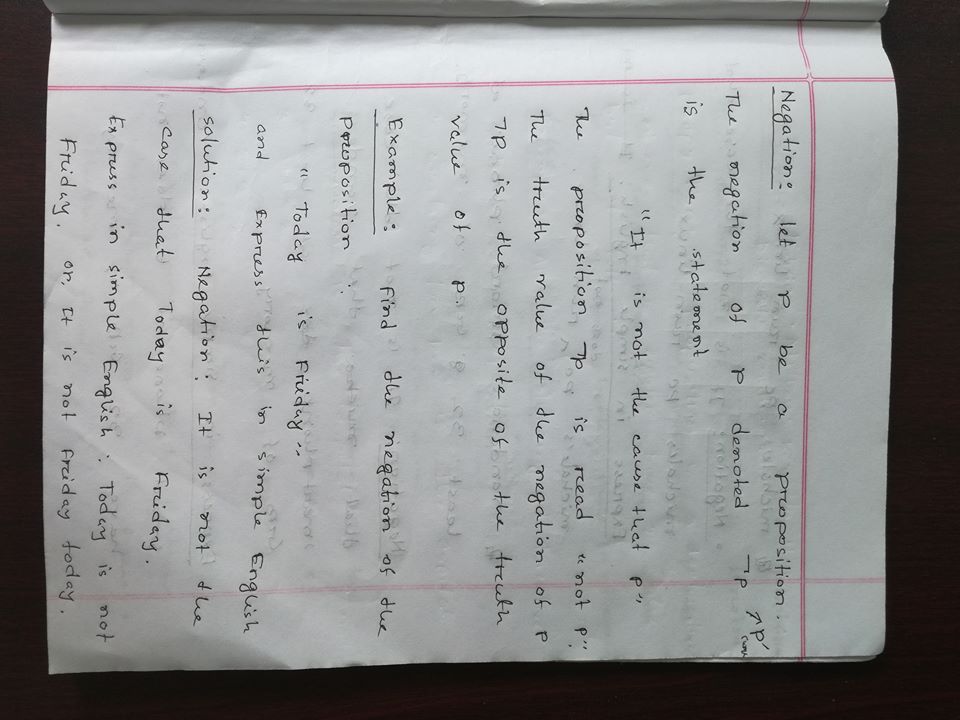 Negation: let P be a proposition.
The negation of P denoted ¬P ↗ P′
is the statement
"It is not the cause that P"
The proposition ¬P is read "not P".
The truth value of the negation of P
¬P is the opposite of the truth
value of P.
Example: Find the negation of the
proposition :
"Today is Friday"
and Express this in simple English
Solution: Negation: It is not the
case that Today is Friday.
Express in simple English: Today is not
Friday. or, It is not friday today.